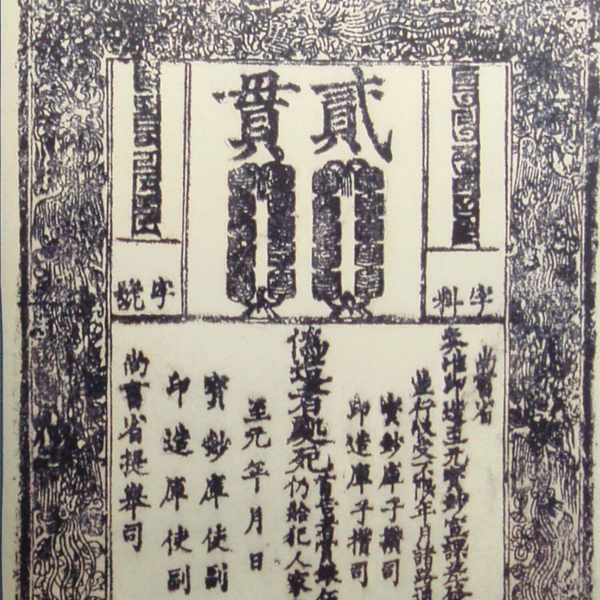 貳貫
字料
字號
尚書省
奏准印造至元寶鈔宣課差發
並行收受不限年月諸路通
寶鈔庫子攢司
印造庫子攢司
偽造者處死
首告者賞銀伍
仍給犯人家
至元年月日
寶鈔庫使副
印造庫使副
尚書省提舉司